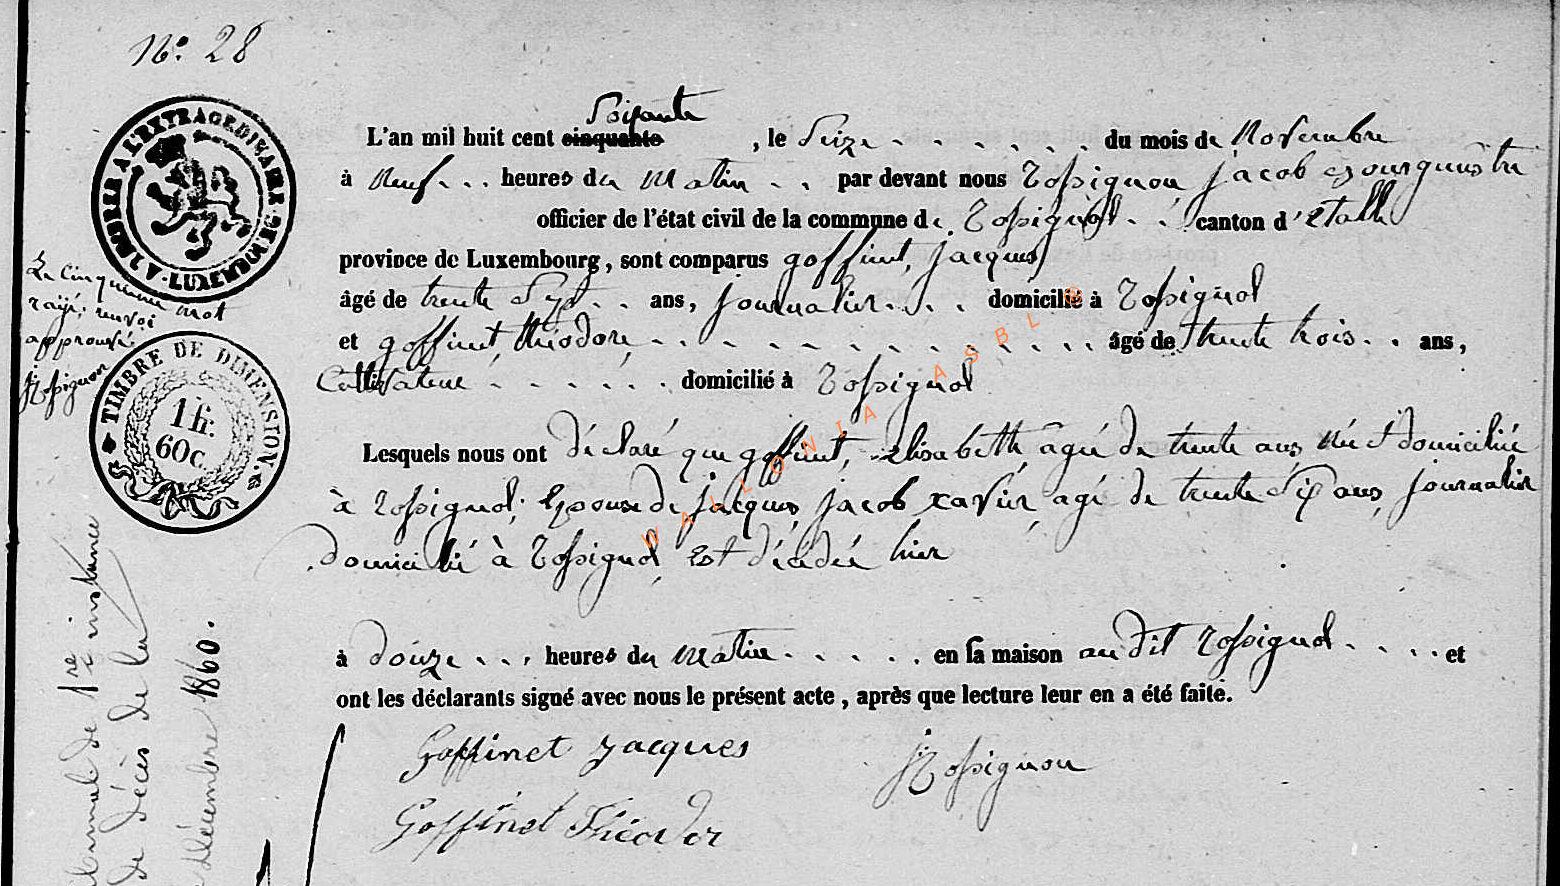 N.° 28
Soixante
L'an mil huit cent cinquante, le Seize . . . . . . du mois de Novembre
à neuf . . . heures du Matin . . par devant nous Rossignon Jacob Bourguemestre
officier de l'état civil de la commune de Rossignol . . canton d'Etalle
province de Luxembourg, sont comparus goffinet, Jacques
âgé de trente Sept . . ans, Journalier . . . . domicilié à Rossignol
et goffinet, théodore, . . . . . . . . . . . . . . âgé de trente trois . . ans,
Cultivateur . . . . . . domicilié à Rossignol
Lesquels nous ont déclaré que goffinet, Elisabeth, âgée de trente ans née et domiciliée
à Rossignol, Epouse de Jacques Jacob xavier, agé de trente Six ans, Journalier
domicilié à Rossignol, est décédée hier
à douze . . . heures du Matin . . . . . en sa maison audit Rossignol . . . . et
ont les déclarants signé avec nous le présent acte, après que lecture leur en a été faite.
Goffinet Jacques
JRossignon
Goffinet Théodor
TIMBRE A L'EXTRAORDINAIRE
LUXEMBOURG
Le Cinquième mot
rayé, renvoi
approuvé.
JRossignon
TIMBRE DE DIMENSION.
1 fr.
60 c.
tribunal de 1re instance
de décès de la
décembre 1860.
WALLONIA ASBL ©